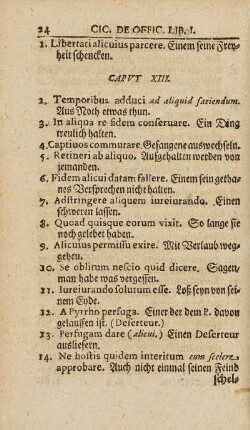 24 CIC. DE OFFIC. LIB. I.
1. Libertati alicuius parcere. Einem seine Frey-
heit schencken.
CAPVT XIII.
2. Temporibus adduci ad aliquid faciendum.
Aus Noth etwas thun.
3. In aliqua re fidem conseruare. Ein Ding
treulich halten.
4. Captiuos commutare. Gefangene auswechseln.
5. Retineri ab aliquo. Aufgehalten werden von
jemanden.
6. Fidem alicui datam fallere. Einem sein getha-
nes Versprochen nicht halten.
7. Adstringere aliquem iureiurando. Einen
schweren lassen.
8. Quoad quisque eorum vixit. So lange sie
noch gelebet haben.
9. Alicuius permissu exire. Mit Verlaub weg-
gehen.
10. Se oblitum nescio quid dicere. Sagen,
man habe was vergessen.
11. Iureiurando solutum esse. Loß seyn von sei-
nem Eyde.
12. A Pyrrho perfuga. Einer der dem P. davon
gelauffen ist. (Deserteur.)
13. Perfugam dare (alicui.) Einen Deserteur
ausliefern.
14. Ne hostis quidem interitum cum scelere
approbare. Auch nicht einmal seinen Feind
schel-